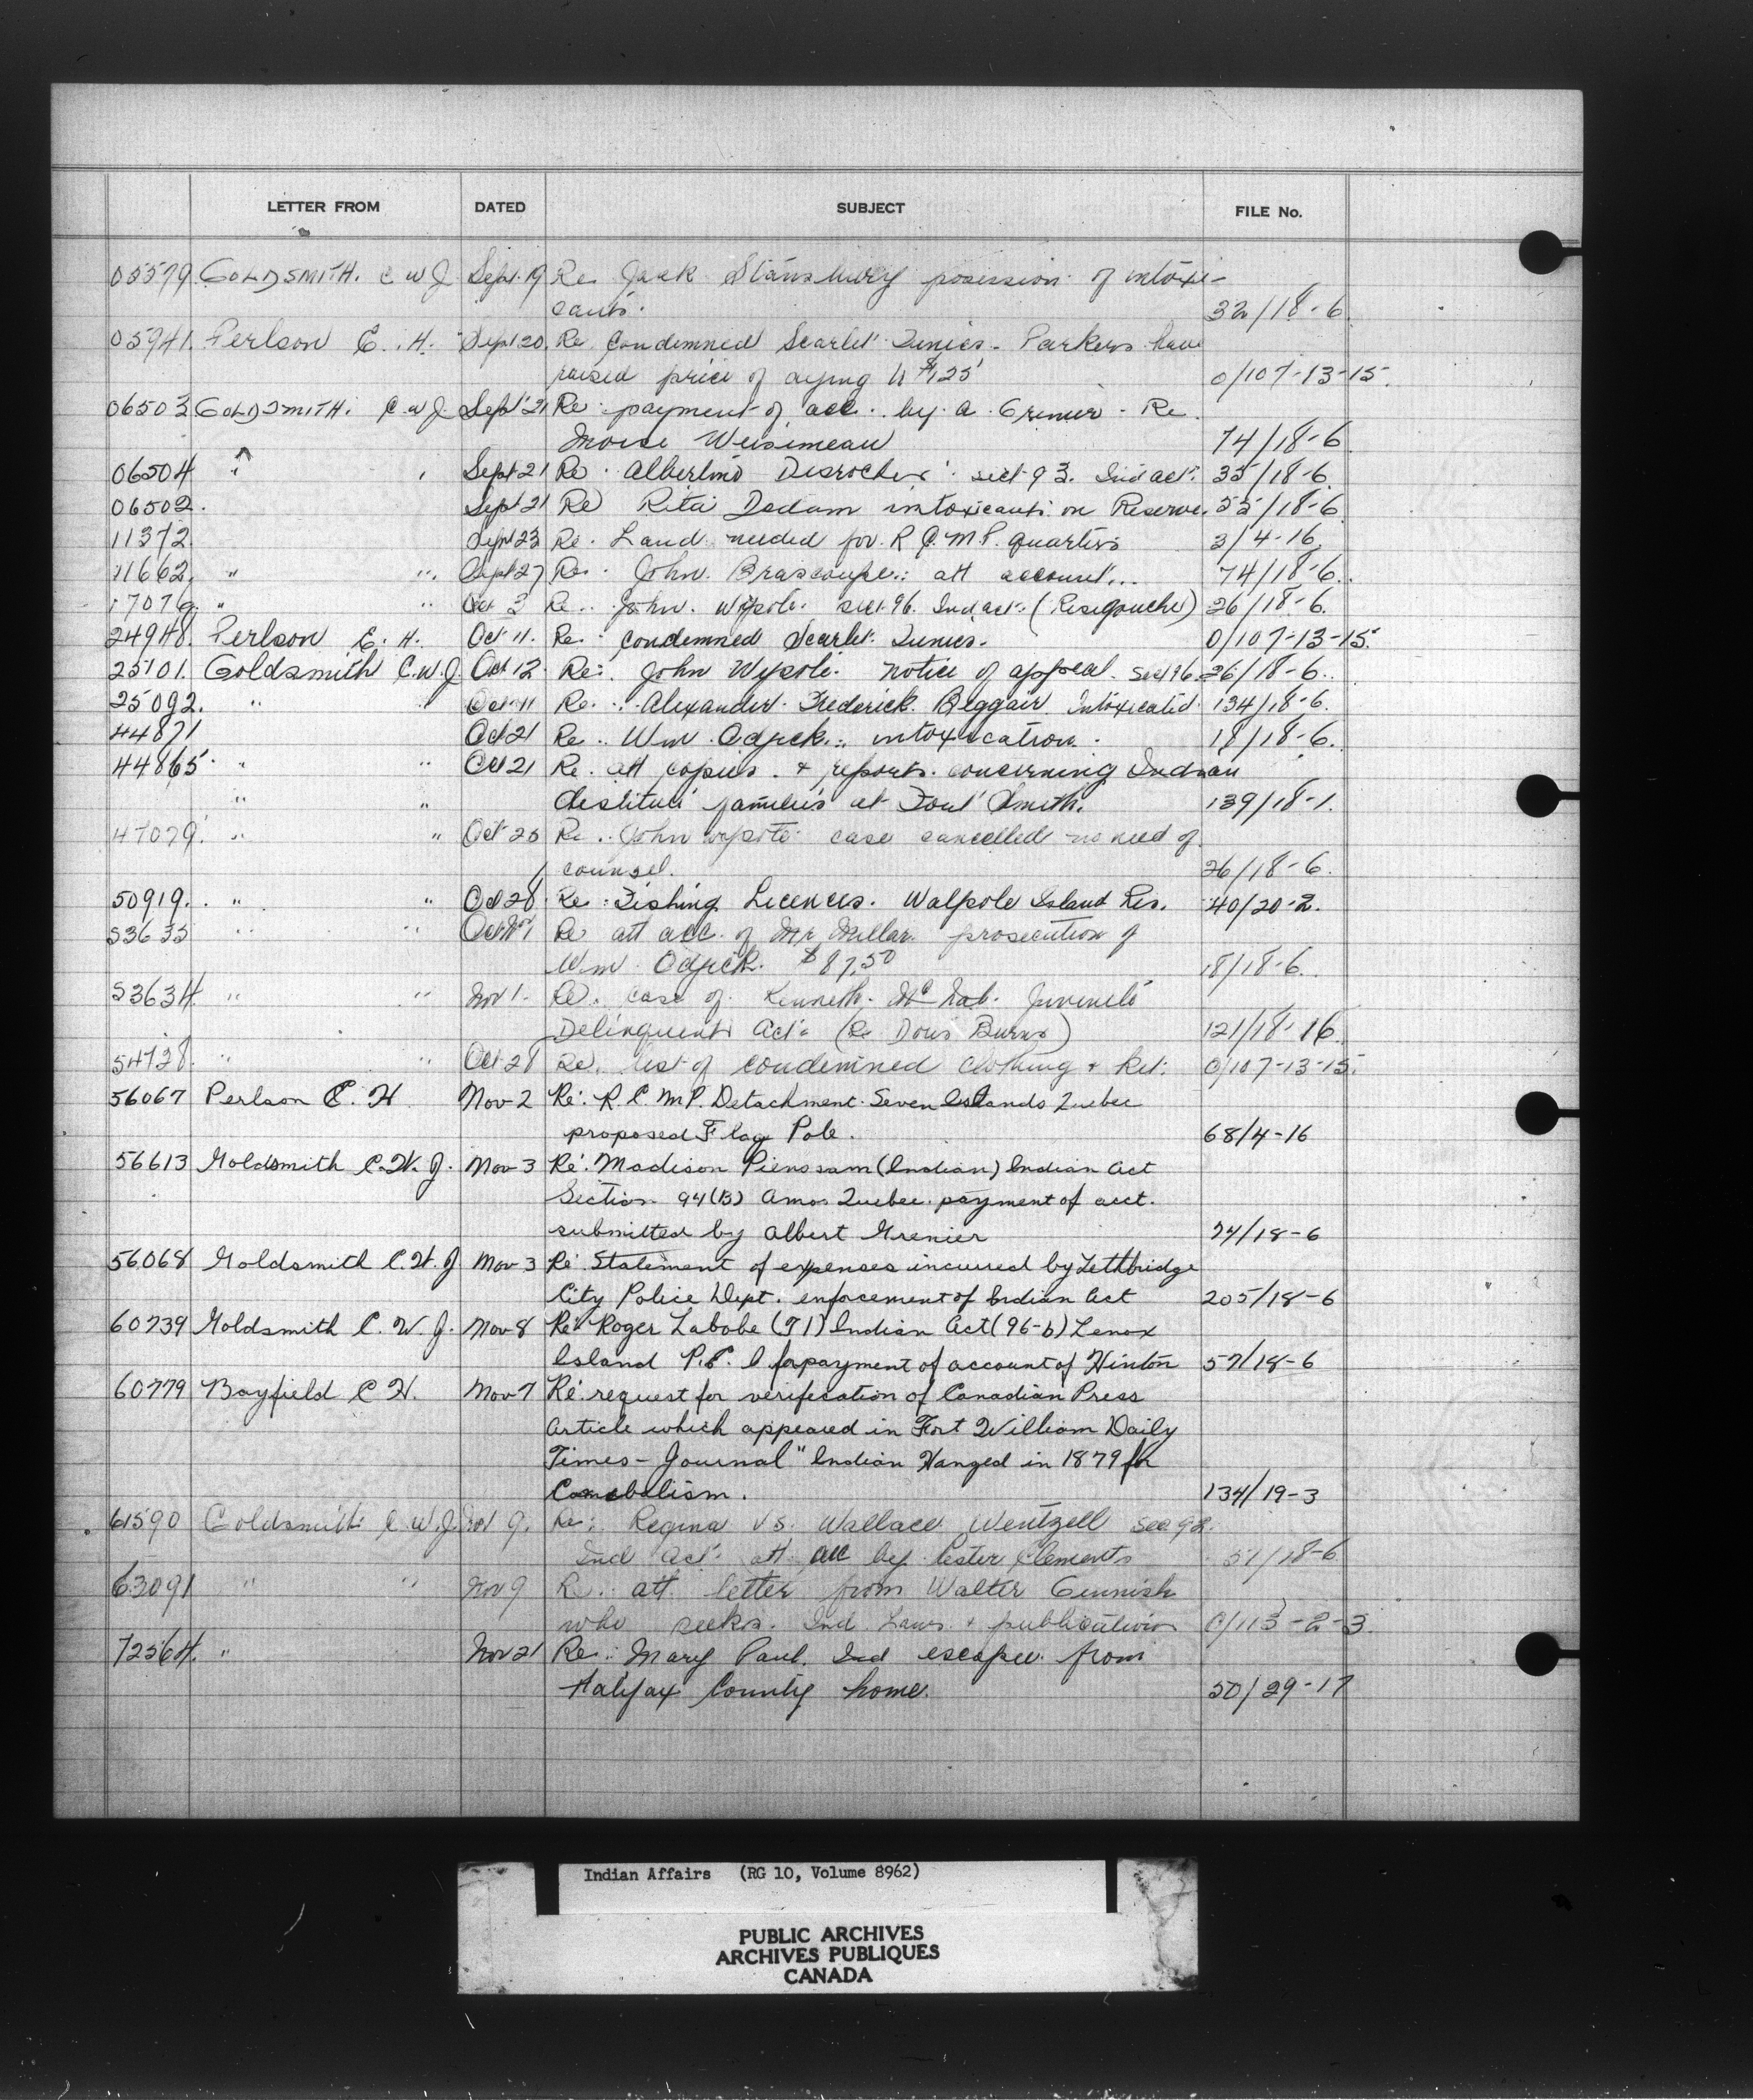 LETTER FROM DATED SUBJECT FILE No.
05579 GOLDSMITH. C W J. Sept. 19 Re Jack Stansbury posession of intoxi-
cants. 32/18-6.
05941. Perlson E. H. Sept 20. Re Condemned Scarlet Tunics - Parkers have
raised price of dying to $1.25 0/107-13-15.
06503 GOLDSMITH. C.W.J. Sept 21 Re payment of acc. by A. Grenier - Re.
Moise 74/18-6
06504 " " Sept 21 Re Desrocher sect 93. Ind act. 35/18-6.
06502. Sept 21 Re Rita Dedam intoxicants on Reserve. 55/18-6
11372. Sept 23 Re. Land needed for R.C.M.P. quarters 3/4-16.
11662. " " Sept 27 Re. John. Brascoupe.: att account... 74/18-6.
17076. " " Oct 3 Re.. John. Wysote. sect 96. Ind act. (Restigouche) 26/18-6.
24948. Perlson E. H. Oct 11. Re. condemned Scarlet. Tunics. 0/107-13-15.
25101. Goldsmith C.W.J. Oct 12. Re:. John Wysote. notice of appeal. Sect 96. 26/18-6..
25092. " " Oct 11 Re. Alexander Frederick. Beggair Intoxicated. 134/18-6.
44871 Oct 21 Re.. Wm. Odjick.: intoxication. 18/18-6.
44865. " " Oct 21 Re. att copies. + reports. concerning Indian
" " destitute families at Fort Smith. 139/18-1.
47079. " " Oct 26 Re.. John wysote case cancelled no need of
counsel. 26/18-6.
50919. " " Oct 28. Re: Fishing Licences. Walpole Island Res. 40/20-2.
53635 " " Nov 1 Re att acc. of Mr Millar. prosecution of
Wm. Odjick. $87.50 18/18-6.
53634. " " Nov 1. Re. case of Kenneth. Mc Nab. Juvenile
Delinquents Act. (Re Doris Burns) 121/18-16
54728. " " Oct 28 Re. list of condemned clothing + kit. 0/107-13-15.
56067 Perlson E. H Nov 2 Re: R.C.M.P. Detachment. Seven Islands Quebec
proposed Flag Pole. 68/4-16
56613 Goldsmith C.W.J. Nov 3 Re: Madison Pienssam (Indian) Indian Act
Section 94(B) Amos Quebec. payment of acct.
submitted by Albert Grenier 74/18-6
56068 Goldsmith C.W.J Nov 3 Re: Statement of expenses incurred by Lethbridge
City Police Dept. enforcement of Indian Act 205/18-6
60739 Goldsmith C. W. J. Nov 8 Re: Roger Labobe (T1) Indian Act (96-b) Lenox
Island P.E. I for payment of account of Hinton 57/18-6
60779 Bayfield C H. Nov 7 Re: request for verification of Canadian Press
Article which appeared in Fort William Daily
Times-Journal "Indian Hanged in 1879 for
Canabalism. 134/19-3
61590 Goldsmith C.W.J. Nov 9. Re: Regina vs. Wallace Wentzell sec 92.
Ind Act. att acc by Lester Clements 51/18-6
63091 " " Nov 9 Re. att letter from Walter Gunnish
who seeks. Ind. Laws. + publications 0/113-2-3.
72564. " Nov 21 Re.. Mary Paul. Ind escapee. from
Halifax County home. 50/29-17
Indian Affairs (RG 10, Volume 8962)
PUBLIC ARCHIVES
ARCHIVES PUBLIQUES
CANADA